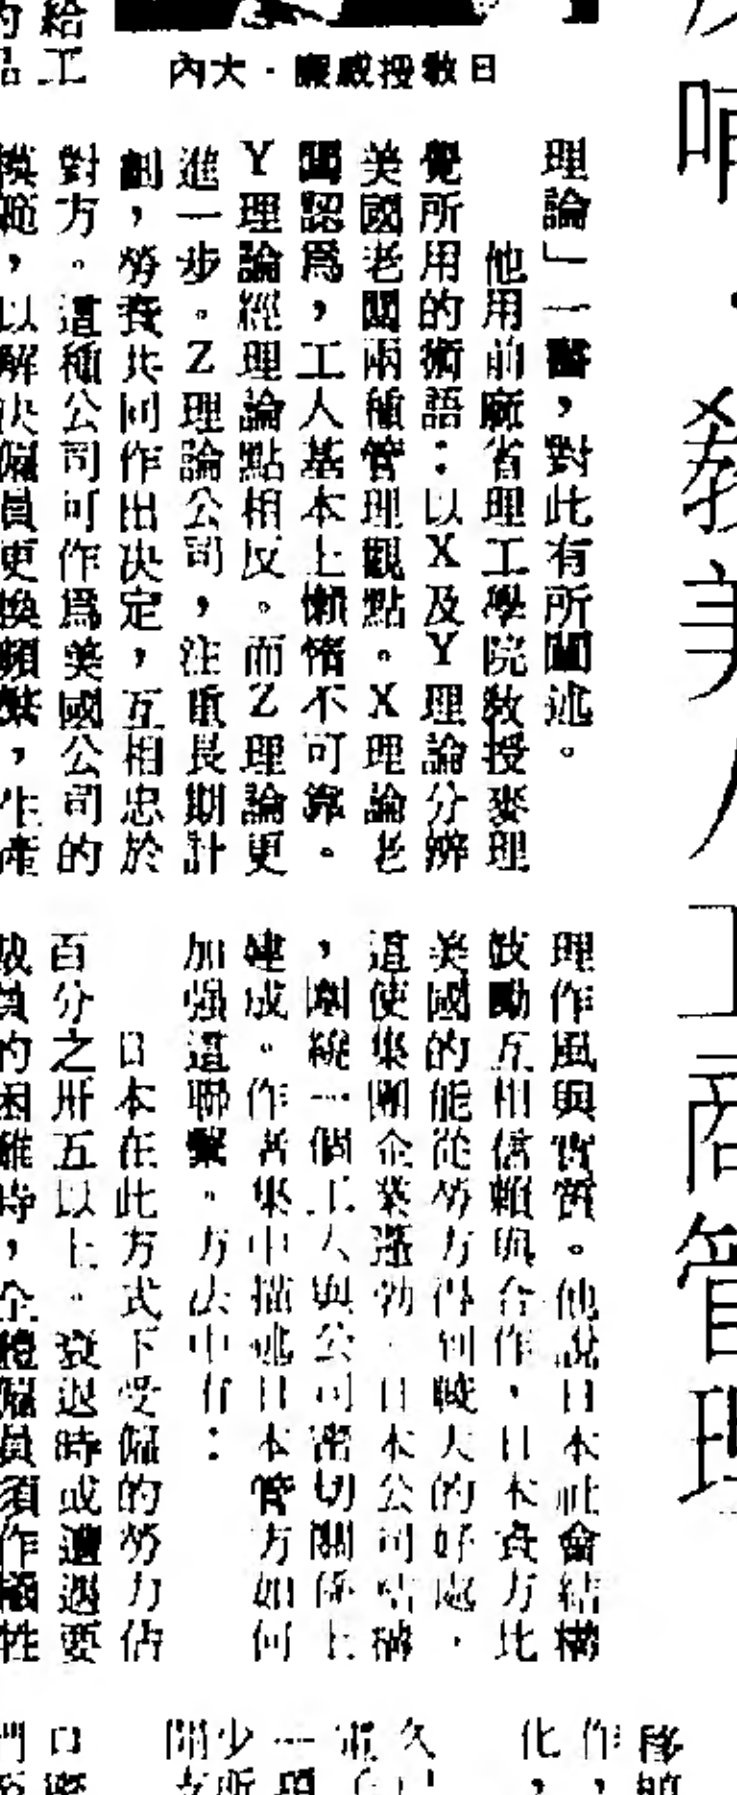 教美人工商管理
日教授威廉·大內
理論」一書，對此有所闡述。
他用前麻省理工學院教授麥理
覺所用的術語：以X及Y理論分辨
美國老闆兩種管理觀點。X理論老
闆認爲，工人基本上懶惰不可靠。
Y理論經理論點相反。而Z理論更
進一步。Z理論公司，注重長期計
劃，勞資共同作出決定，互相忠於
對方。這種公司可作爲美國公司的
模範，以解決僱員更換頻繁，生產
給工
理作風與實質。他說日本社會結構
鼓勵互相信賴與合作，日本資方比
美國的能從勞方得到較大的好處，
這使集團企業蓬勃。日本公司結構
，圍繞一個工人與公司密切關係上
建成。作者集中描述日本管方如何
加强這聯繫。方法中有：
日本在此方式下受僱的勞力佔
百分之卅五以上。衰退時或遭遇要
裁員的困難時，全體僱員須作犧牲
化，
作，
久
一項
少所
開
口
門